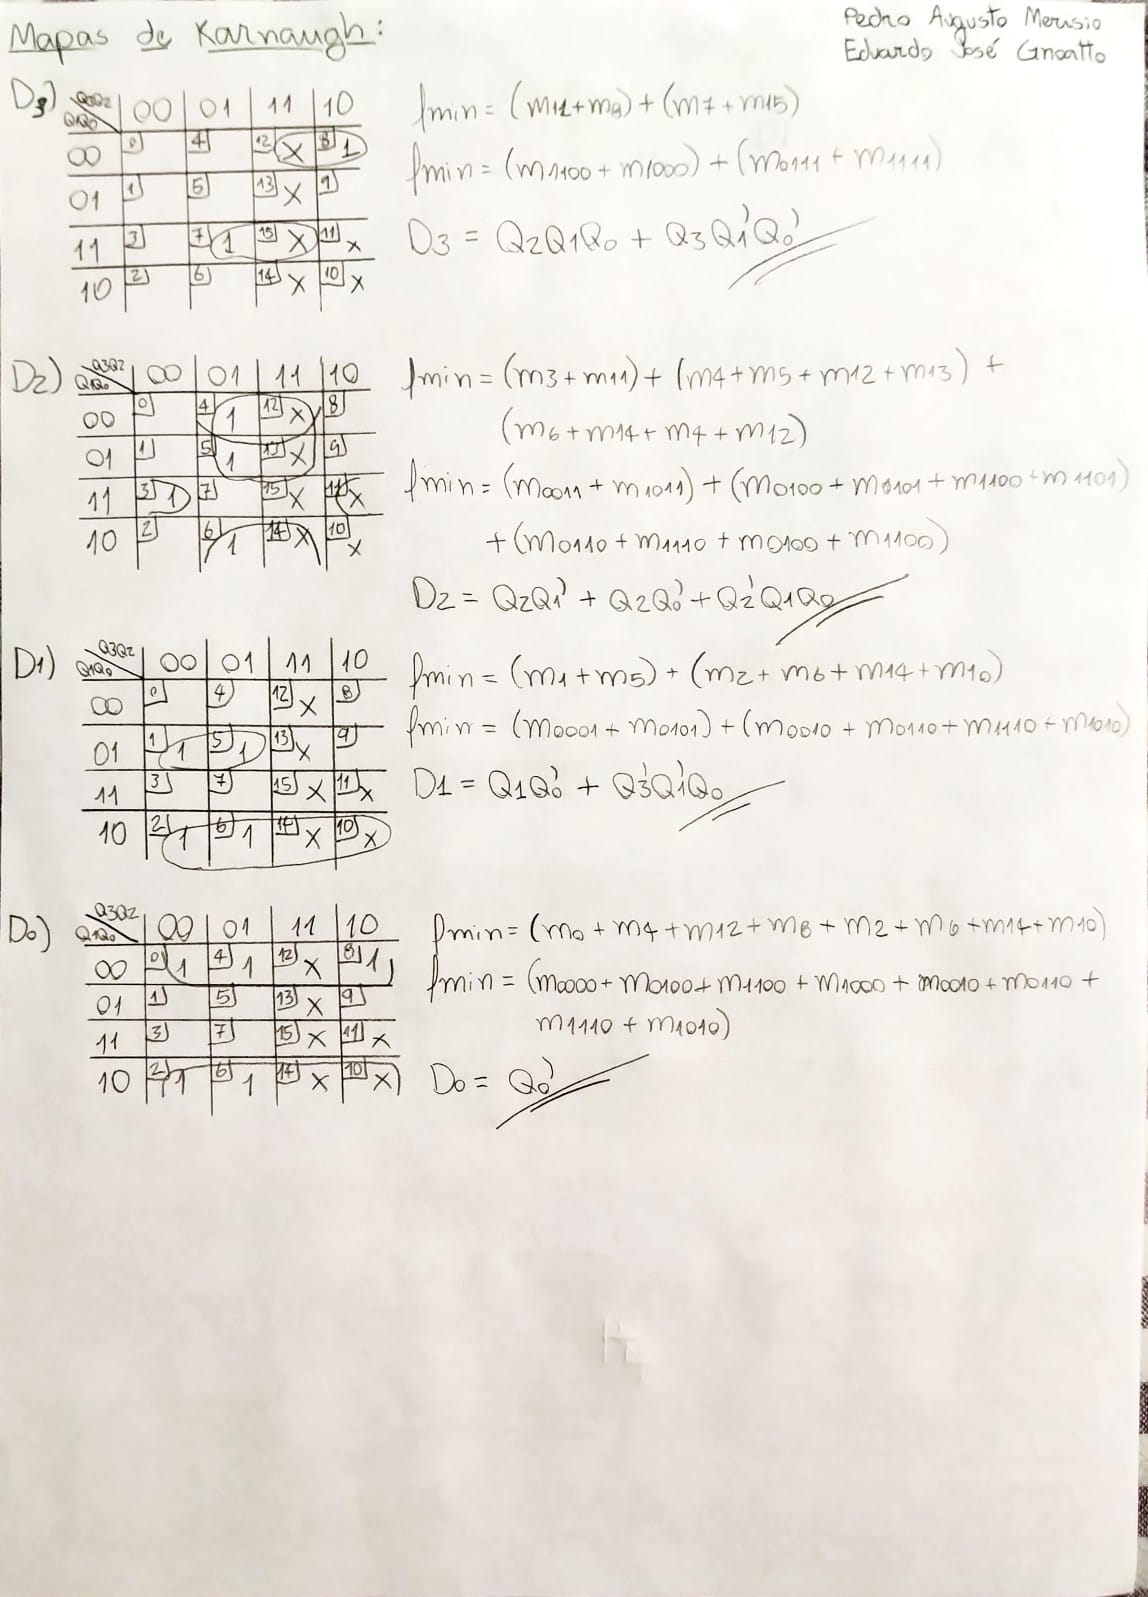 Mapas de Karnaugh:
Pedro Augusto Merisio
Eduardo José Gnoatto
D3)
Q3Q2
Q1Q0
00 01 11 10
00 0 4 12 X 8 1
01 1 5 13 X 9
11 3 7 1 15 X 11 X
10 2 6 14 X 10 X
fmin = (m12+m8) + (m7+m15)
fmin = (m1100 + m1000) + (m0111 + m1111)
D3 = Q2Q1Q0 + Q3Q1'Q0'
D2)
Q3Q2
Q1Q0
00 01 11 10
00 0 4 1 12 X 8
01 1 5 1 13 X 9
11 3 1 7 15 X 11 X
10 2 6 1 14 X 10 X
fmin = (m3 + m11) + (m4 + m5 + m12 + m13) +
(m6 + m14 + m4 + m12)
fmin = (m0011 + m1011) + (m0100 + m0101 + m1100 + m1101)
+ (m0110 + m1110 + m0100 + m1100)
D2 = Q2Q1' + Q2Q0' + Q2'Q1Q0
D1)
Q3Q2
Q1Q0
00 01 11 10
00 0 4 12 X 8
01 1 1 5 1 13 X 9
11 3 7 15 X 11 X
10 2 1 6 1 14 X 10 X
fmin = (m1 + m5) + (m2 + m6 + m14 + m10)
fmin = (m0001 + m0101) + (m0010 + m0110 + m1110 + m1010)
D1 = Q1Q0' + Q3'Q1'Q0
D0)
Q3Q2
Q1Q0
00 01 11 10
00 0 1 4 1 12 X 8 1
01 1 5 13 X 9
11 3 7 15 X 11 X
10 2 1 6 1 14 X 10 X
fmin = (m0 + m4 + m12 + m8 + m2 + m6 + m14 + m10)
fmin = (m0000 + m0100 + m1100 + m1000 + m0010 + m0110 +
m1110 + m1010)
D0 = Q0'